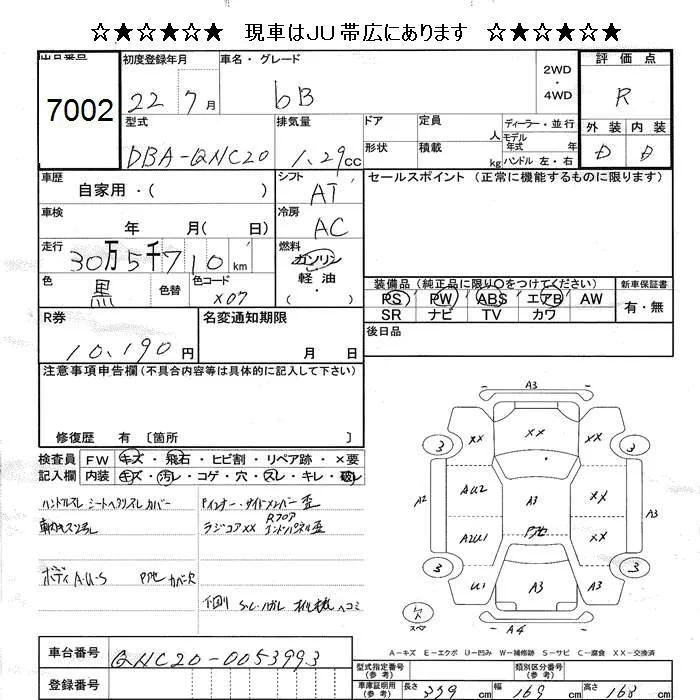 ☆★☆★☆★ 現車はJU帯広にあります ☆★☆★☆★
出品番号
7002
初度登録年月
22 7月
車名・グレード
bB
2WD
・
4WD
評価点
R
外装 内装
D D
型式
DBA-QNC20
排気量
1.29cc
ドア
定員
人
形状
積載
kg
ディーラー・並行
モデル
年式 年
ハンドル 左・右
車歴
自家用・( )
シフト
AT
セールスポイント (正常に機能するものに限ります)
車検
年 月( 日)
冷房
AC
走行
30万5千710km
燃料
ガソリン
軽油
・
( )
色
黒
色替
色コード
X07
装備品(純正品に限り○をつけてください)
PS PW ABS エアB AW
SR ナビ TV カワ
新車保証書
有・無
R券
10,190円
名変通知期限
月 日
後日品
注意事項申告欄(不具合内容等は具体的に記入して下さい)
修復歴 有 〔箇所 〕
検査員
記入欄
FW キズ・飛石・ヒビ割・リペア跡・×要
内装 キズ・汚レ・コゲ・穴・スレ・キレ・破レ
ハンドルスレ シートヘタリスレ カバー
ボディ A・U・S
ラジコアXX
下回り S・C・ハガレ
A3
3 XX XX XX 3
A2 AU2 A3 XX A3
A2U1 XX
3 U1 A3 A3 3
スペア
A4
A-キズ E-エクボ U-凹み W-補修跡 S-サビ C-腐食 XX-交換済
車台番号
QNC20-0053993
登録番号
型式指定番号
(参考)
類別区分番号
(参考)
車庫証明用
(参考)
長さ 379cm 幅 169cm 高さ 168cm